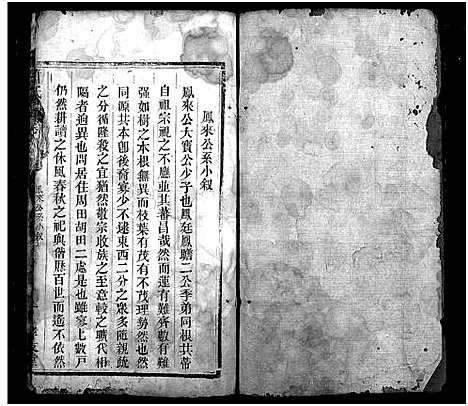 鳳來公系小敍
鳳來公大賓公少子也鳳廷鳳瞻二公季弟同根共蒂
自祖宗視之不應並其蕃昌哉然而運有難齊數有難
強如樹之木根無異而枝葉有茂有不茂理勢然也然
同源共本卽後裔寥少不逮東西二分之衆多隨親疏
之分循隆殺之宜猶然敬宗收族之至意較之曠代相
隔者逈異也問居住周田胡田二處是也雖家上數戶
仍然耕讀之休風春秋之祀典偕歷百世而遙不依然
鳳來公系小敍